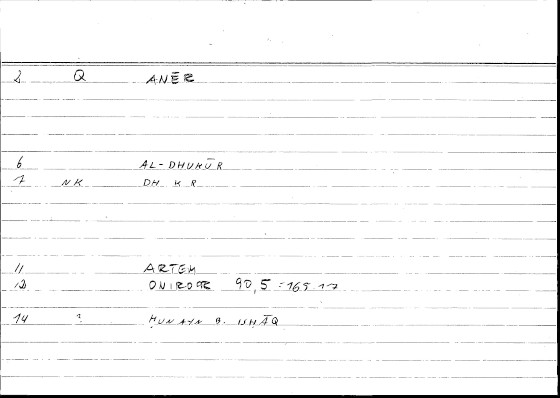 2 Q ANĒR
6 AL-DHUKŪR
7 NK DH K R
11 ARTEM
12 ONIROCR 90,5 = 165 17
14 ? HUNAYN B. ISHĀQ